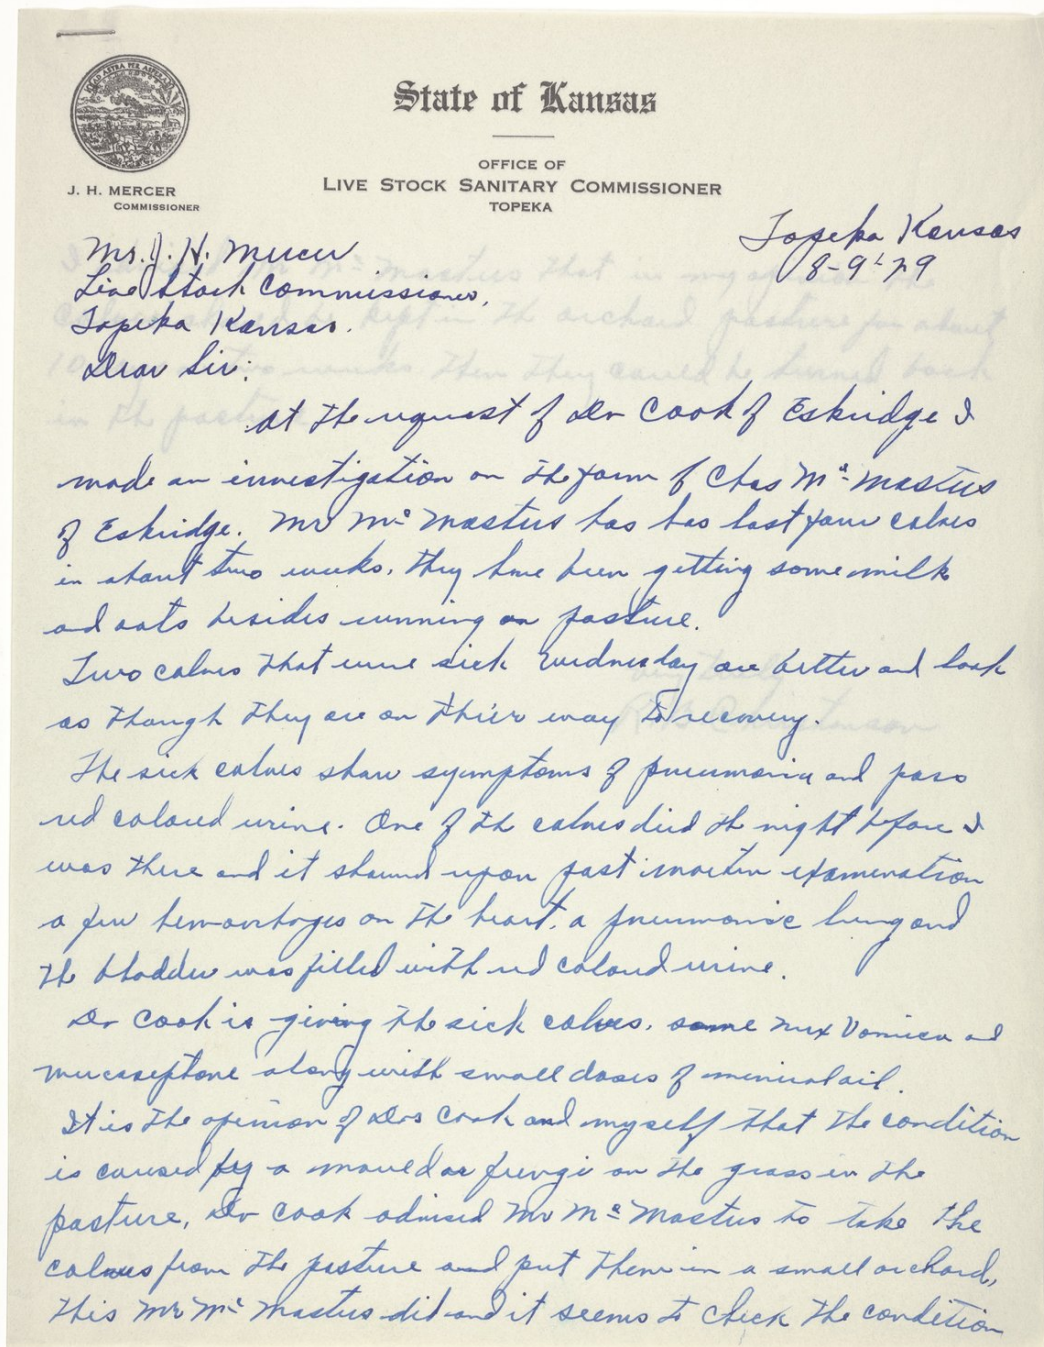 State of Kansas
OFFICE OF
LIVE STOCK SANITARY COMMISSIONER
TOPEKA
J. H. MERCER
COMMISSIONER
Topeka Kansas
8-9-29
Mr. J. H. Mercer
Live Stock Commissioner,
Topeka Kansas.
Dear Sir:
At the request of Dr Cook of Eskridge I
made an investigation on the farm of Chas Mc Mastus
of Eskridge. Mr Mc Mastus has has lost four calves
in about two weeks. They have been getting some milk
ad oats besides running on pasture.
Two calves that were sick Wednesday are better and look
as though they are on thier way to recovery.
The sick calves show symptoms of pneumonia and pass
red colored urine. One of the calves died the night before I
was there and it showed upon post mortem examination
a few hemorrhages on the heart, a pneumonic lung and
the bladder was filled with red colored urine.
Dr Cook is giving the sick calves, some nux vomica ad
mucaseptone along with small doses of mineral oil.
It is the opinion of Drs Cook and myself that the condition
is caused by a mould or fungi on the grass in the
pasture, Dr Cook advised Mr Mc Mastus to take the
calves from the pasture and put them in a small orchard,
this Mr Mc Mastus did and it seems to check the condition